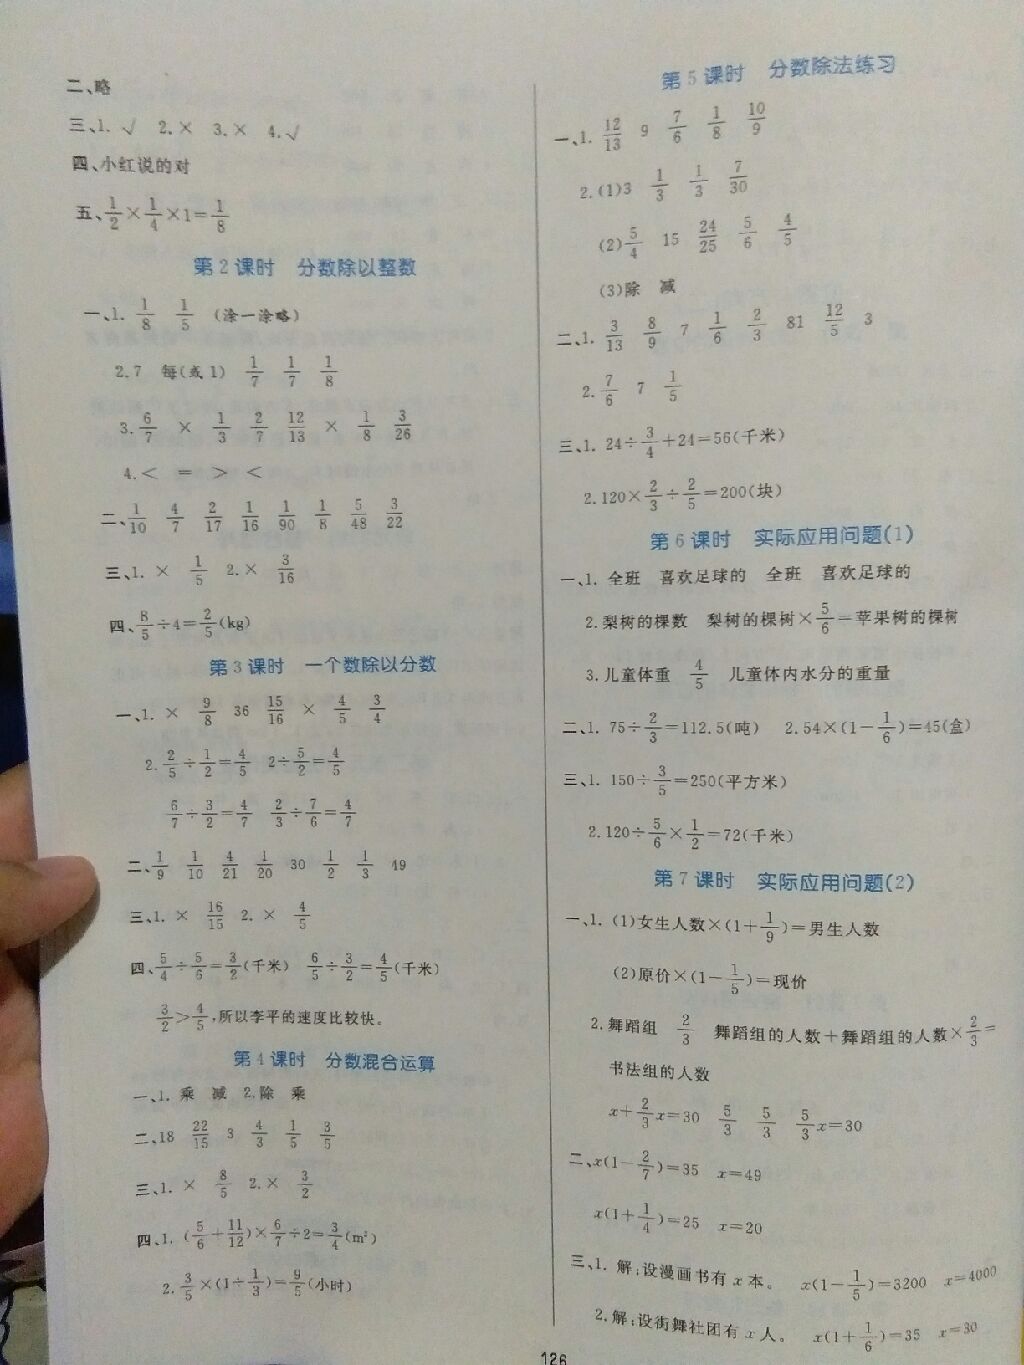 二、略
三、1. √ 2. × 3. × 4. √
四、小红说的对
五、1/2×1/4×1=1/8
第2课时 分数除以整数
一、1. 1/8 1/5 (涂一涂略)
2. 7 每(或1) 1/7 1/7 1/8
3. 6/7 × 1/3 2/7 12/13 × 1/8 3/26
4. < = > <
二、1/10 4/7 2/17 1/16 1/90 1/8 5/48 3/22
三、1. × 1/5 2. × 3/16
四、8/5÷4=2/5(kg)
第3课时 一个数除以分数
一、1. × 9/8 36 15/16 × 4/5 3/4
2. 2/5÷1/2=4/5 2÷5/2=4/5
6/7÷3/2=4/7 2/3÷7/6=4/7
二、1/9 1/10 4/21 1/20 30 1/2 1/3 49
三、1. × 16/15 2. × 4/5
四、5/4÷5/6=3/2(千米) 6/5÷3/2=4/5(千米)
3/2>4/5,所以李平的速度比较快。
第4课时 分数混合运算
一、1. 乘 减 2. 除 乘
二、18 22/15 3 4/3 1/5 3/5
三、1. × 8/5 2. × 3/2
四、1. (5/6+11/12)×6/7÷2=3/4(m²)
2. 3/5×(1÷1/3)=9/5(小时)
第5课时 分数除法练习
一、1. 12/13 9 7/6 1/8 10/9
2. (1)3 1/3 1/3 7/30
(2)5/4 15 24/25 5/6 4/5
(3)除 减
二、1. 3/13 8/9 7 1/6 2/3 81 12/5 3
2. 7/6 7 1/5
三、1. 24÷3/4+24=56(千米)
2. 120×2/3÷2/5=200(块)
第6课时 实际应用问题(1)
一、1. 全班 喜欢足球的 全班 喜欢足球的
2. 梨树的棵数 梨树的棵树×5/6=苹果树的棵树
3. 儿童体重 4/5 儿童体内水分的重量
二、1. 75÷2/3=112.5(吨) 2. 54×(1-1/6)=45(盒)
三、1. 150÷3/5=250(平方米)
2. 120÷5/6×1/2=72(千米)
第7课时 实际应用问题(2)
一、1. (1)女生人数×(1+1/9)=男生人数
(2)原价×(1-1/5)=现价
2. 舞蹈组 2/3 舞蹈组的人数+舞蹈组的人数×2/3=
书法组的人数
x+2/3x=30 5/3 5/3 5/3x=30
二、x(1-2/7)=35 x=49
x(1+1/4)=25 x=20
三、1. 解:设漫画书有x本。 x(1-1/5)=3200 x=4000
2. 解:设街舞社团有x人。 x(1+1/6)=35 x=30
126